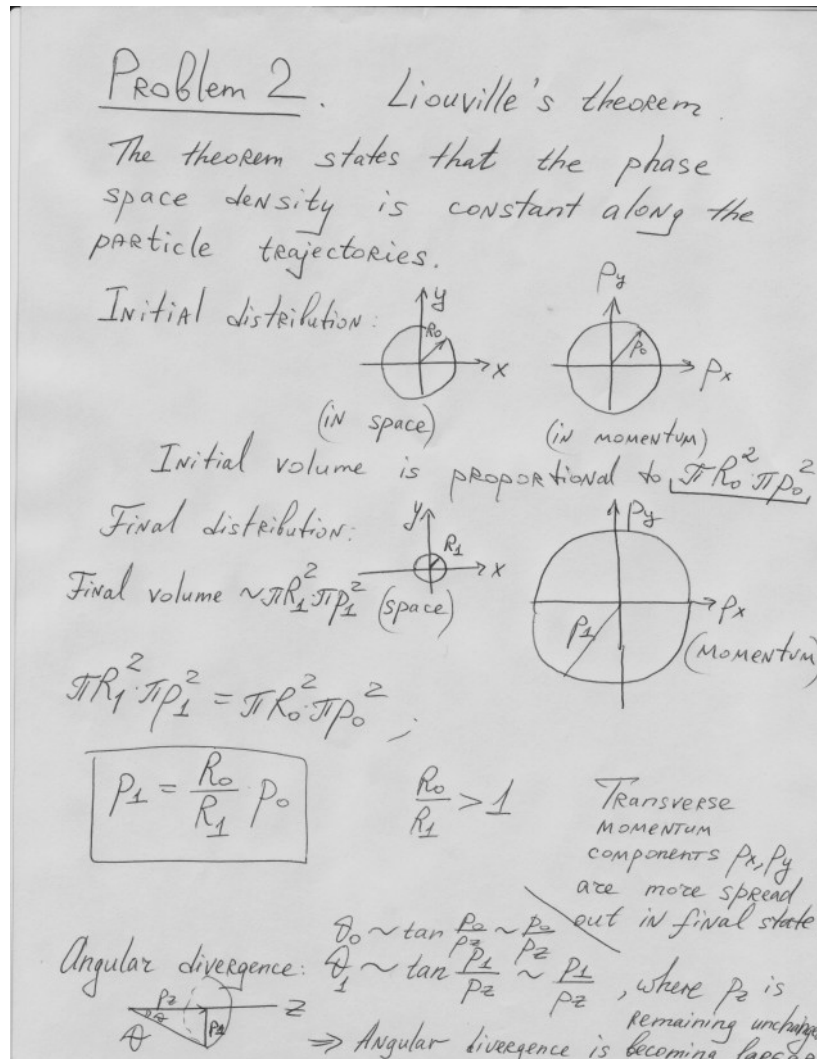 Problem 2. Liouville's theorem.
The theorem states that the phase
space density is constant along the
particle trajectories.
Initial distribution:
y
R₀
x
(in space)
Py
p₀
Px
(in momentum)
Initial volume is proportional to πR₀²·πp₀²,
Final distribution:
y
R₁
x
(space)
Py
P₁
Px
(momentum)
Final volume ~πR₁²·πp₁²
πR₁²·πp₁² = πR₀²·πp₀² ;
P₁ = R₀/R₁ · p₀
R₀/R₁ > 1
Transverse
momentum
components Px, Py
are more spread
out in final state
Angular divergence:
θ₀ ~ tan p₀/pz ~ p₀/pz
θ₁ ~ tan p₁/pz ~ p₁/pz , where pz is
remaining unchange
pz
θ
z
P₁
θ
⇒ Angular divergence is becoming larger